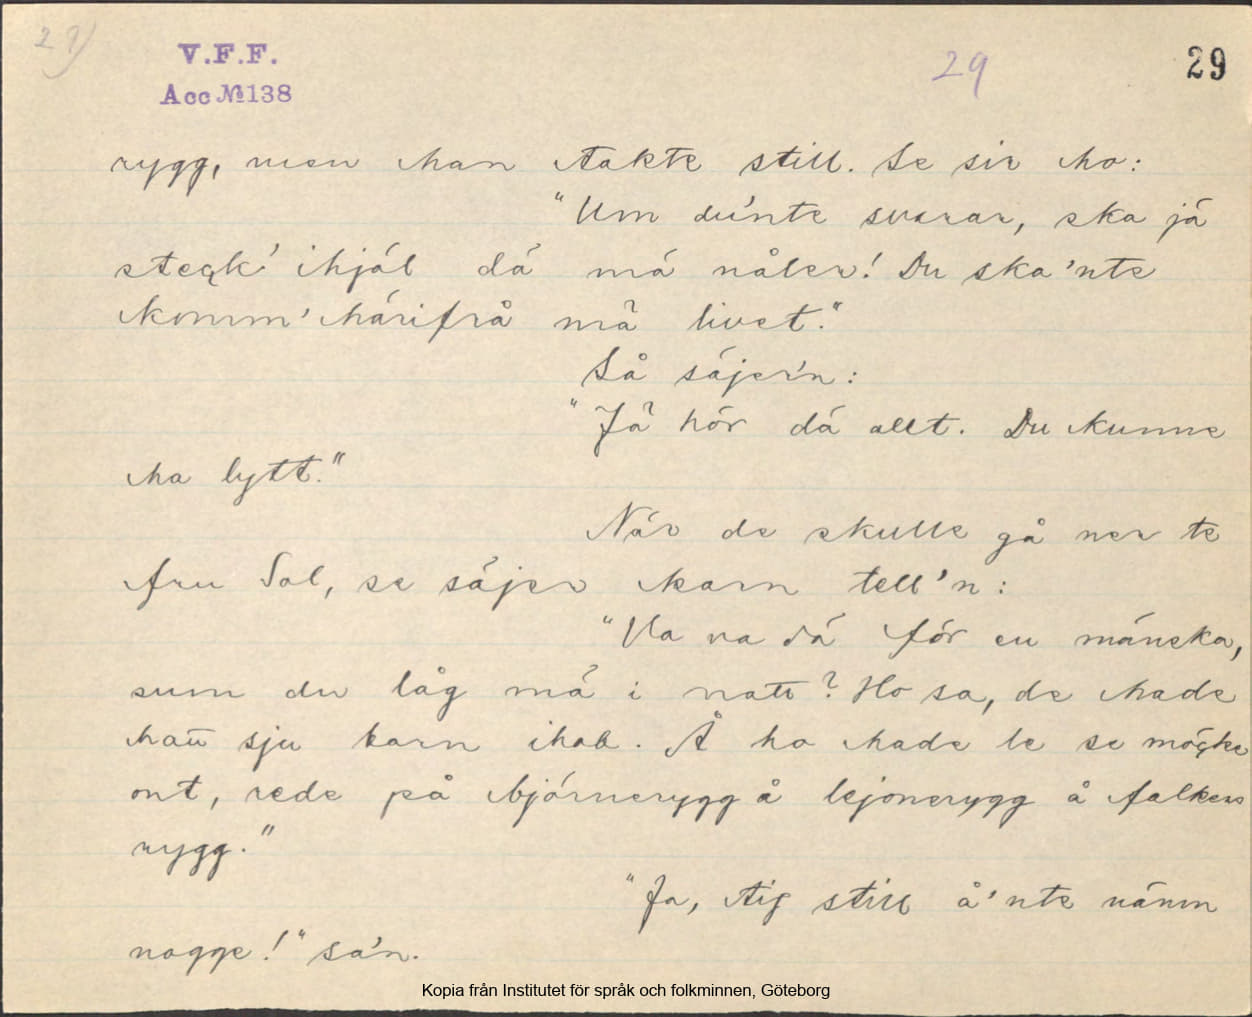 29)
V.F.F.
29
29
Acc № 138
rygg, men han takte still. Se sir ho:
"Um du'nte svarar, ska já
steck' ihjál dá má nåler! Du ska'nte
komm' hárifrå má livet."
Så sájer'n:
"Já hór dá allt. Du kunne
ha lytt."
Nár de skulle gå ner te
fru Sol, se sájer karn tell'n:
"Va va dá fór en mánska,
sum du låg má i natt? Ho sa, de hade
hatt sju barn ihob. Å ho hade le se
ont, rede på bjórnerygg å lejonerygg å falkens
rygg."
"Ja, tig still å'nte námn
nogge!" sa'n.
Kopia från Institutet för språk och folkminnen, Göteborg